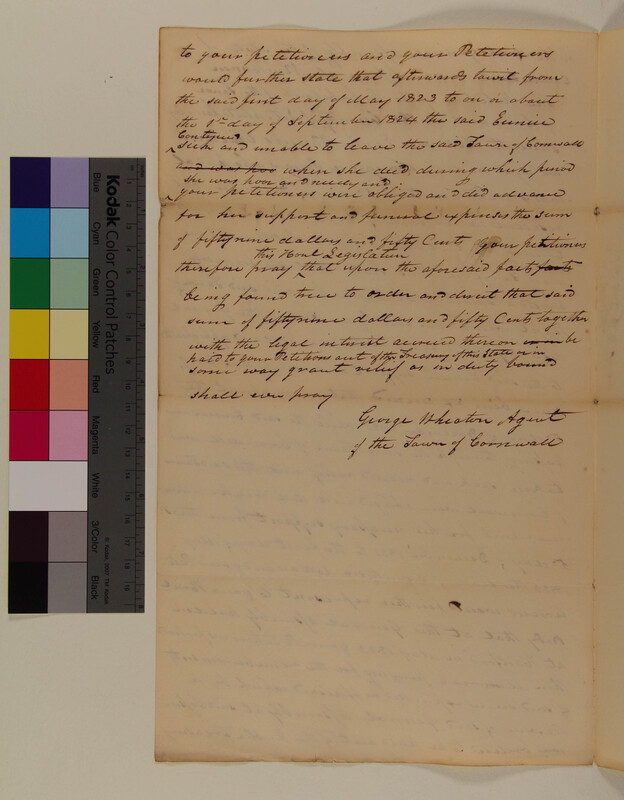 to your petetioners and your Petetioners
would further state that afterwards towit from
the said first day of May 1823 to on or about
the 1st day of September 1824 the said Eunice
Contynued
sick and unable to leave the said Town of Cornwall
and was poor when she died during which period
she was poor and needy and
your petetioners were obliged and did advance
for her support and funeral expenses the sum
of fiftynine dollars and fifty Cents your petetioners
this Honl Legislature
therefore pray that upon the aforesaid facts facts
being found true to order and direct that said
sum of fiftynine dollars and fifty Cents together
with the legal interest accrued thereon be
paid to your Petetioners out of the Treasury of this State or in
some way grant relief as in duty bound
shall ever pray
George Wheaton Agent
of the Town of Cornwall
Kodak Color Control Patches
Blue
Cyan
Green
Yellow
Red
Magenta
White
3/Color
Black